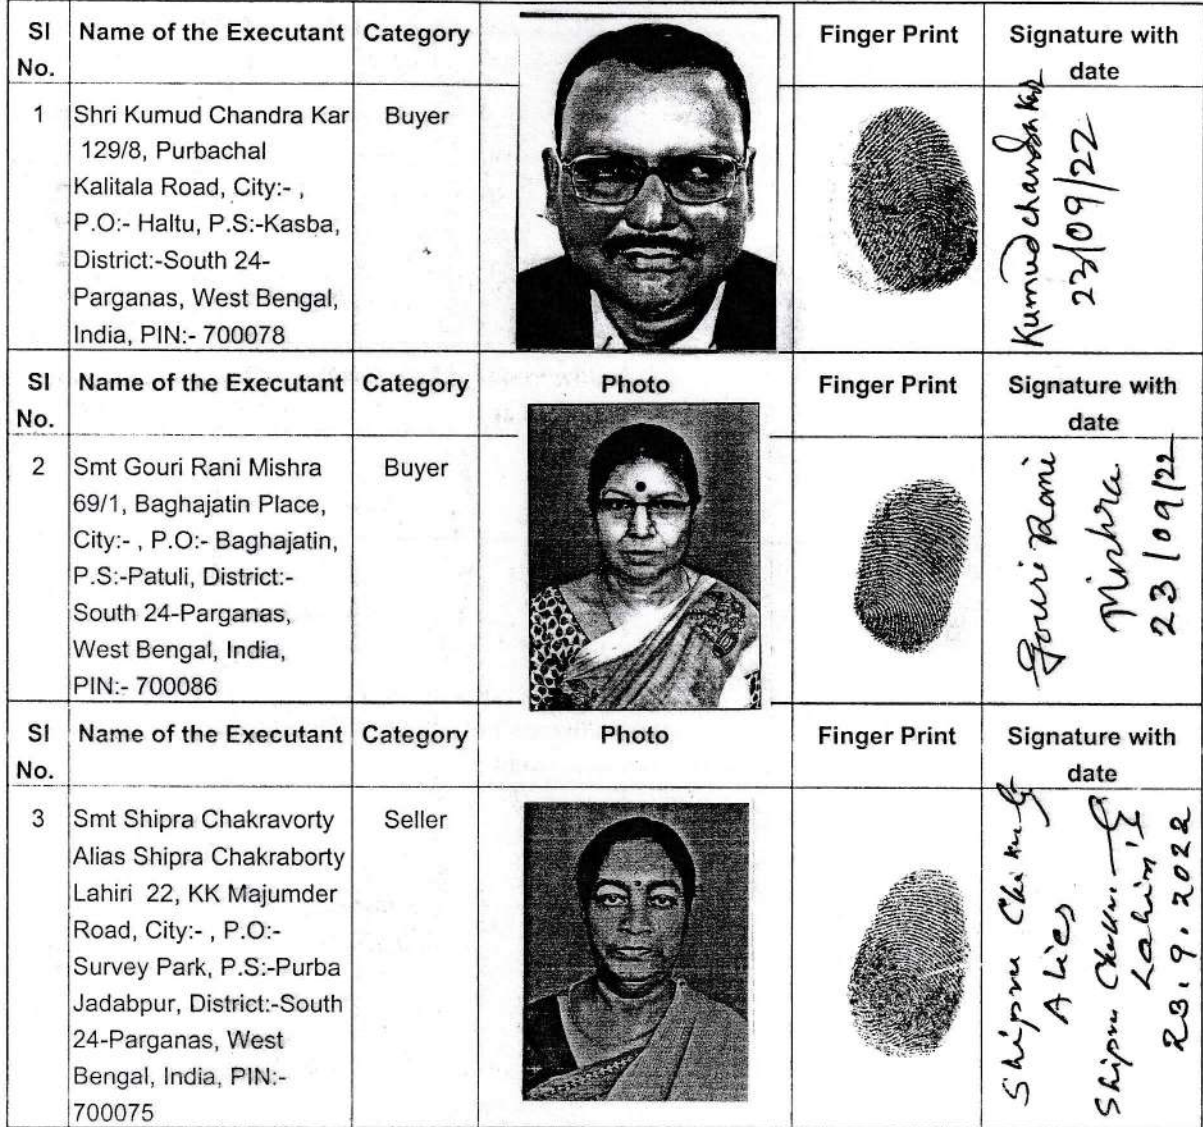 Sl No.
Name of the Executant
Category
Finger Print
Signature with date
1
Shri Kumud Chandra Kar
129/8, Purbachal
Kalitala Road, City:- ,
P.O:- Haltu, P.S:-Kasba,
District:-South 24-
Parganas, West Bengal,
India, PIN:- 700078
Buyer
Kumud chandra Kar
23/09/22
Sl No.
Name of the Executant
Category
Photo
Finger Print
Signature with date
2
Smt Gouri Rani Mishra
69/1, Baghajatin Place,
City:- , P.O:- Baghajatin,
P.S:-Patuli, District:-
South 24-Parganas,
West Bengal, India,
PIN:- 700086
Buyer
Gouri Rani
Mishra
23/09/22
Sl No.
Name of the Executant
Category
Photo
Finger Print
Signature with date
3
Smt Shipra Chakravorty
Alias Shipra Chakraborty
Lahiri 22, KK Majumder
Road, City:- , P.O:-
Survey Park, P.S:-Purba
Jadabpur, District:-South
24-Parganas, West
Bengal, India, PIN:-
700075
Seller
Shipra
Alies
Shipra
Lahiri
23.9.2022